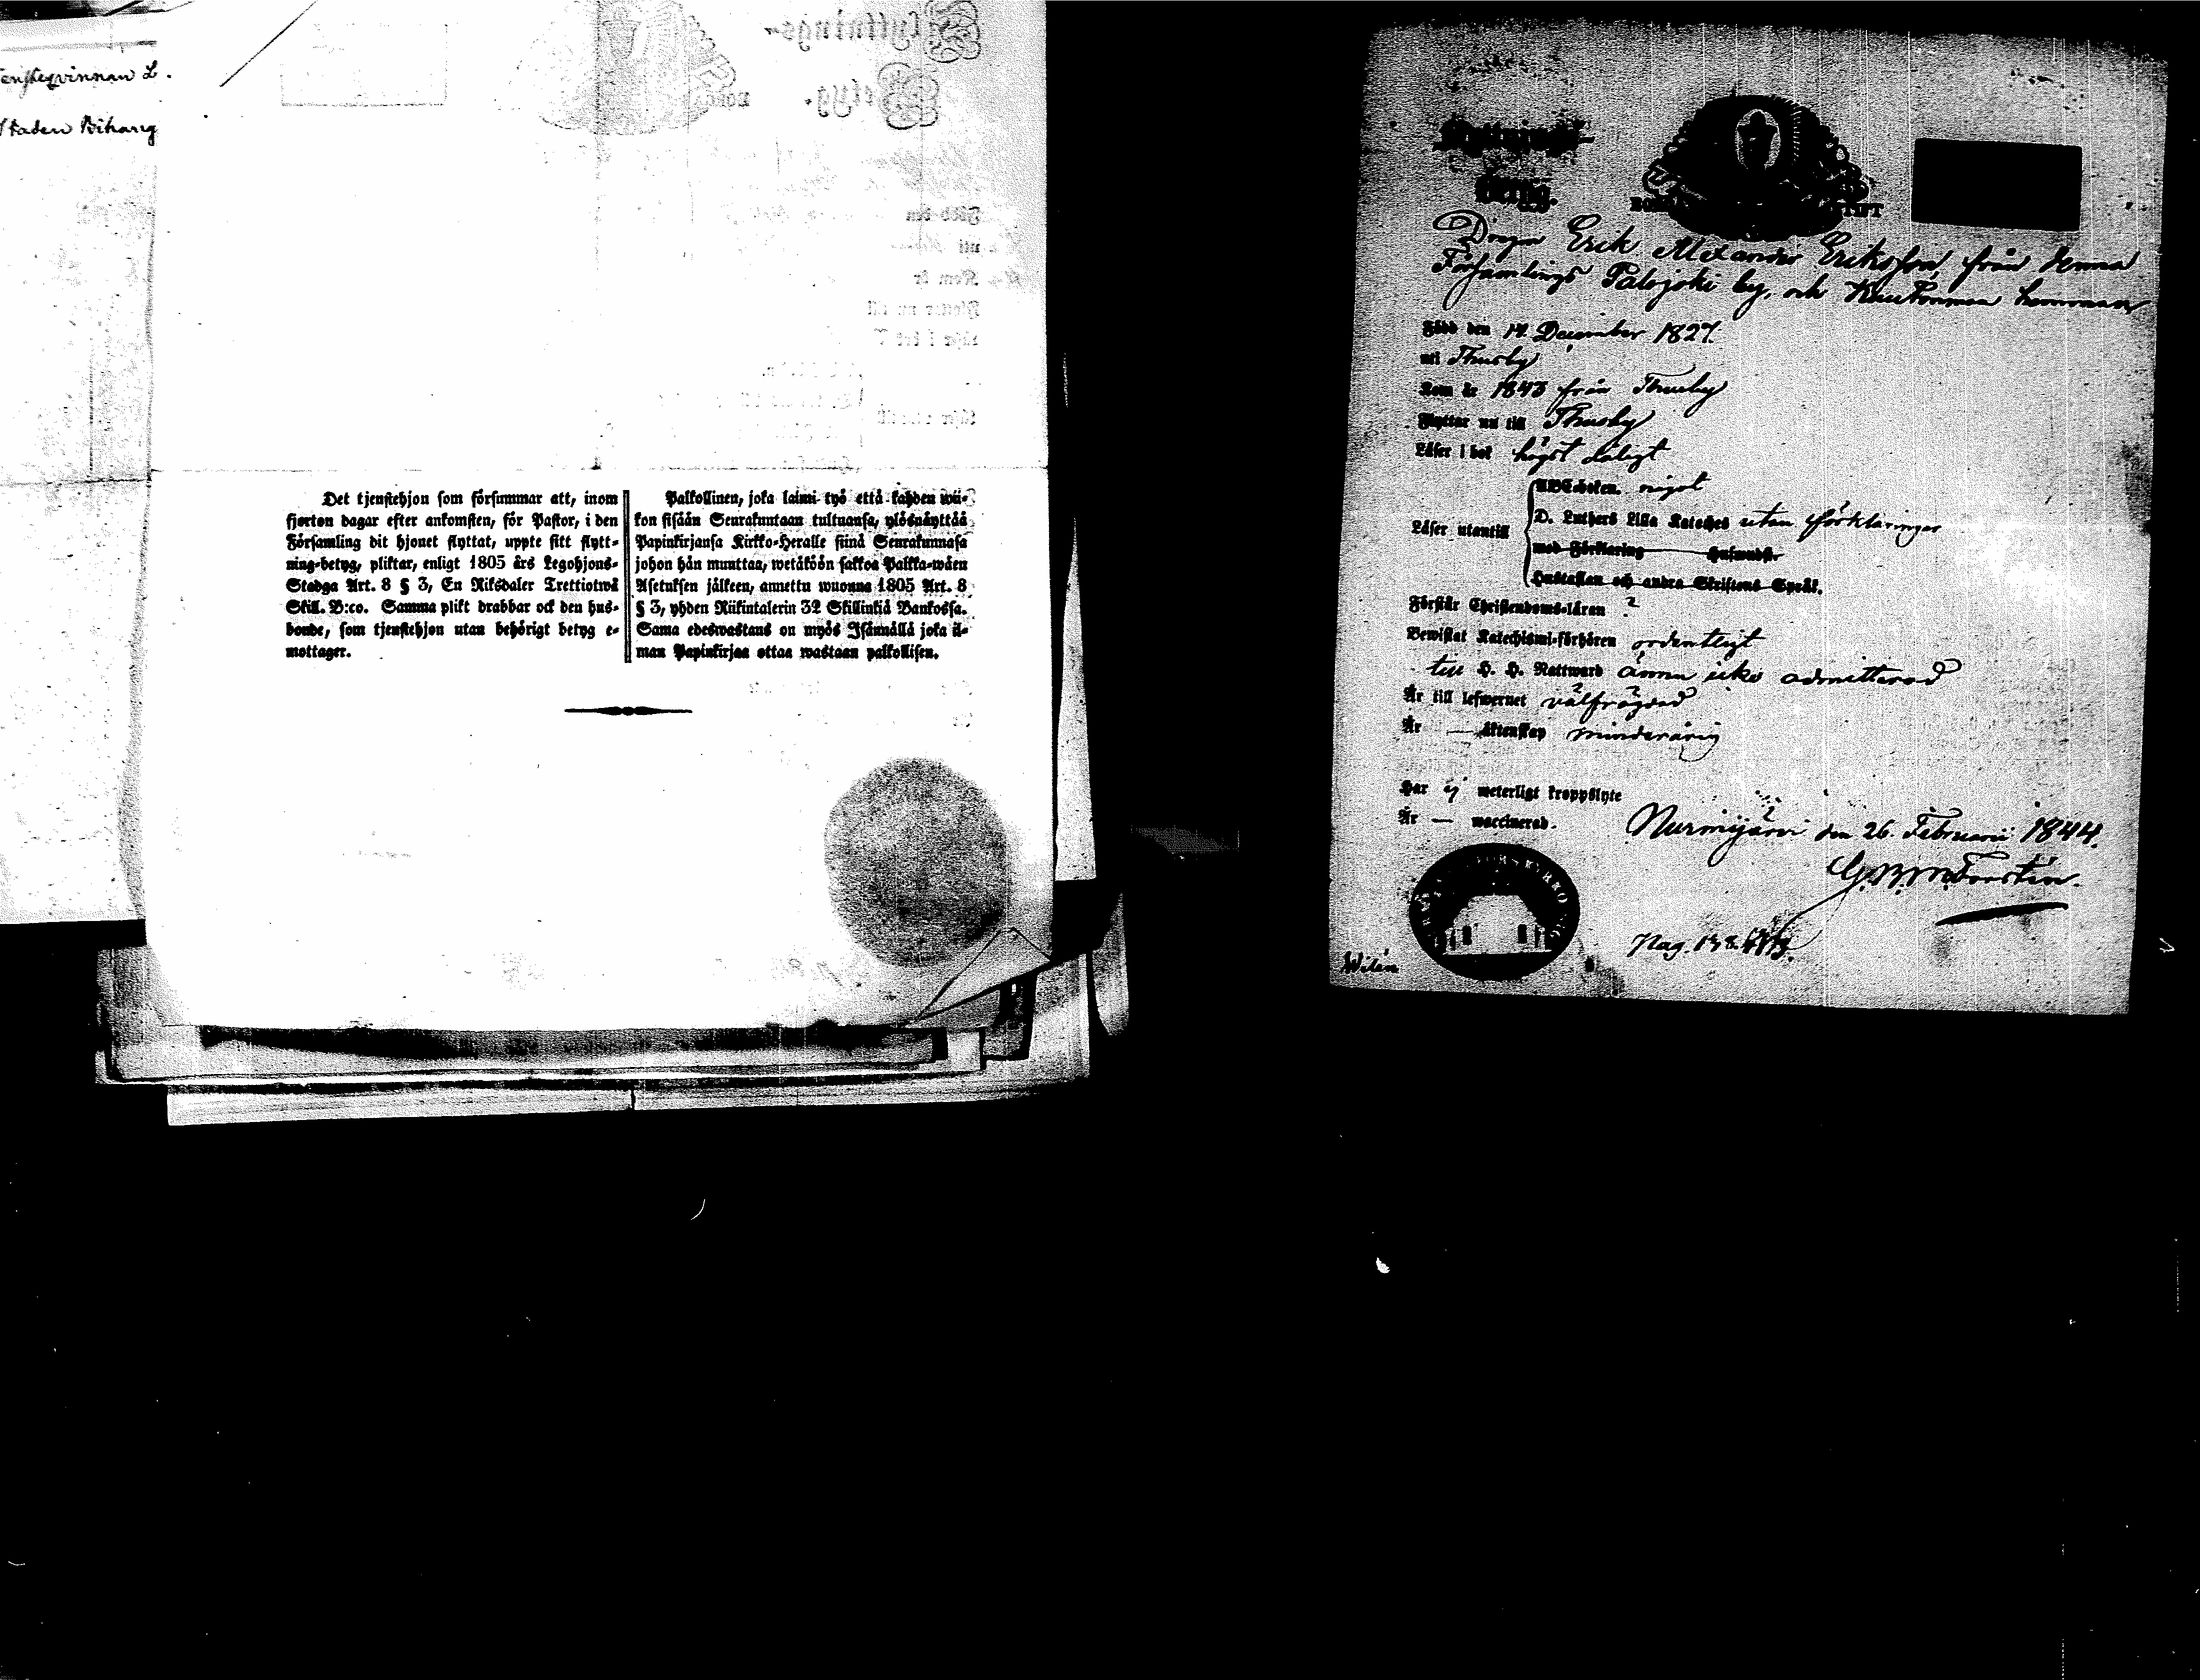 tjensteqvinnan L.
staden Bihang
Det tjenstehjon som försummar att, inom
fjorton dagar efter ankomsten, för Pastor, i den
Församling dit hjonet flyttat, uppte sitt flytt-
ning-betyg, pliktar, enligt 1805 års Legohjons-
Stadga Art. 8 § 3, En Riksdaler Trettiotwå
Skill. B:co. Samma plikt drabbar ock den hus-
bonde, som tjenstehjon utan behörigt betyg e-
mottager.
Palkollinen, joka laimi-työ että kahden wii-
kon sisään Seurakuntaan tultuansa, ylösnäyttää
Papinkirjansa Kirkko-Heralle siinä Seurakunnasa
johon hän muuttaa, wetäköön sakkoa Palkka-wäen
Asetuksen jälkeen, annettu wuonna 1805 Art. 8
§ 3, yhden Riikintalerin 32 Skillinkiä Bankossa.
Sama edeswastaus on myös Isännällä joka il-
man Papinkirjaa ottaa wastaan palkollisen.
Flyttnings-
Betyg.
Drgn Erik Alexander Eriksson från denna
Församlings Palojoki by, och hemman
Född den 14 December 1827.
uti Thusby
Kom år 1843 från Thusby
Flyttar nu till Thusby
Läser i bok högst dåligt
ABC-boken. något
Läser utantill
D. Luthers Lilla Kateches utan förklaringar
med Förklaring Husandst.
Hustaflan och andra Skriftens Språk.
Förstår Christendoms-läran ?
Bewistat Katechismi-förhören ordentligt
till H. H. Nattward ännu icke admitterad
Är till lefwernet välfrägdad
Är — äktenskap minderårig
Har ej weterligt kroppslyte
Är — waccinerad.
Nurmijärvi den 26. Februari 1844.
Pag. 138.
Wilén